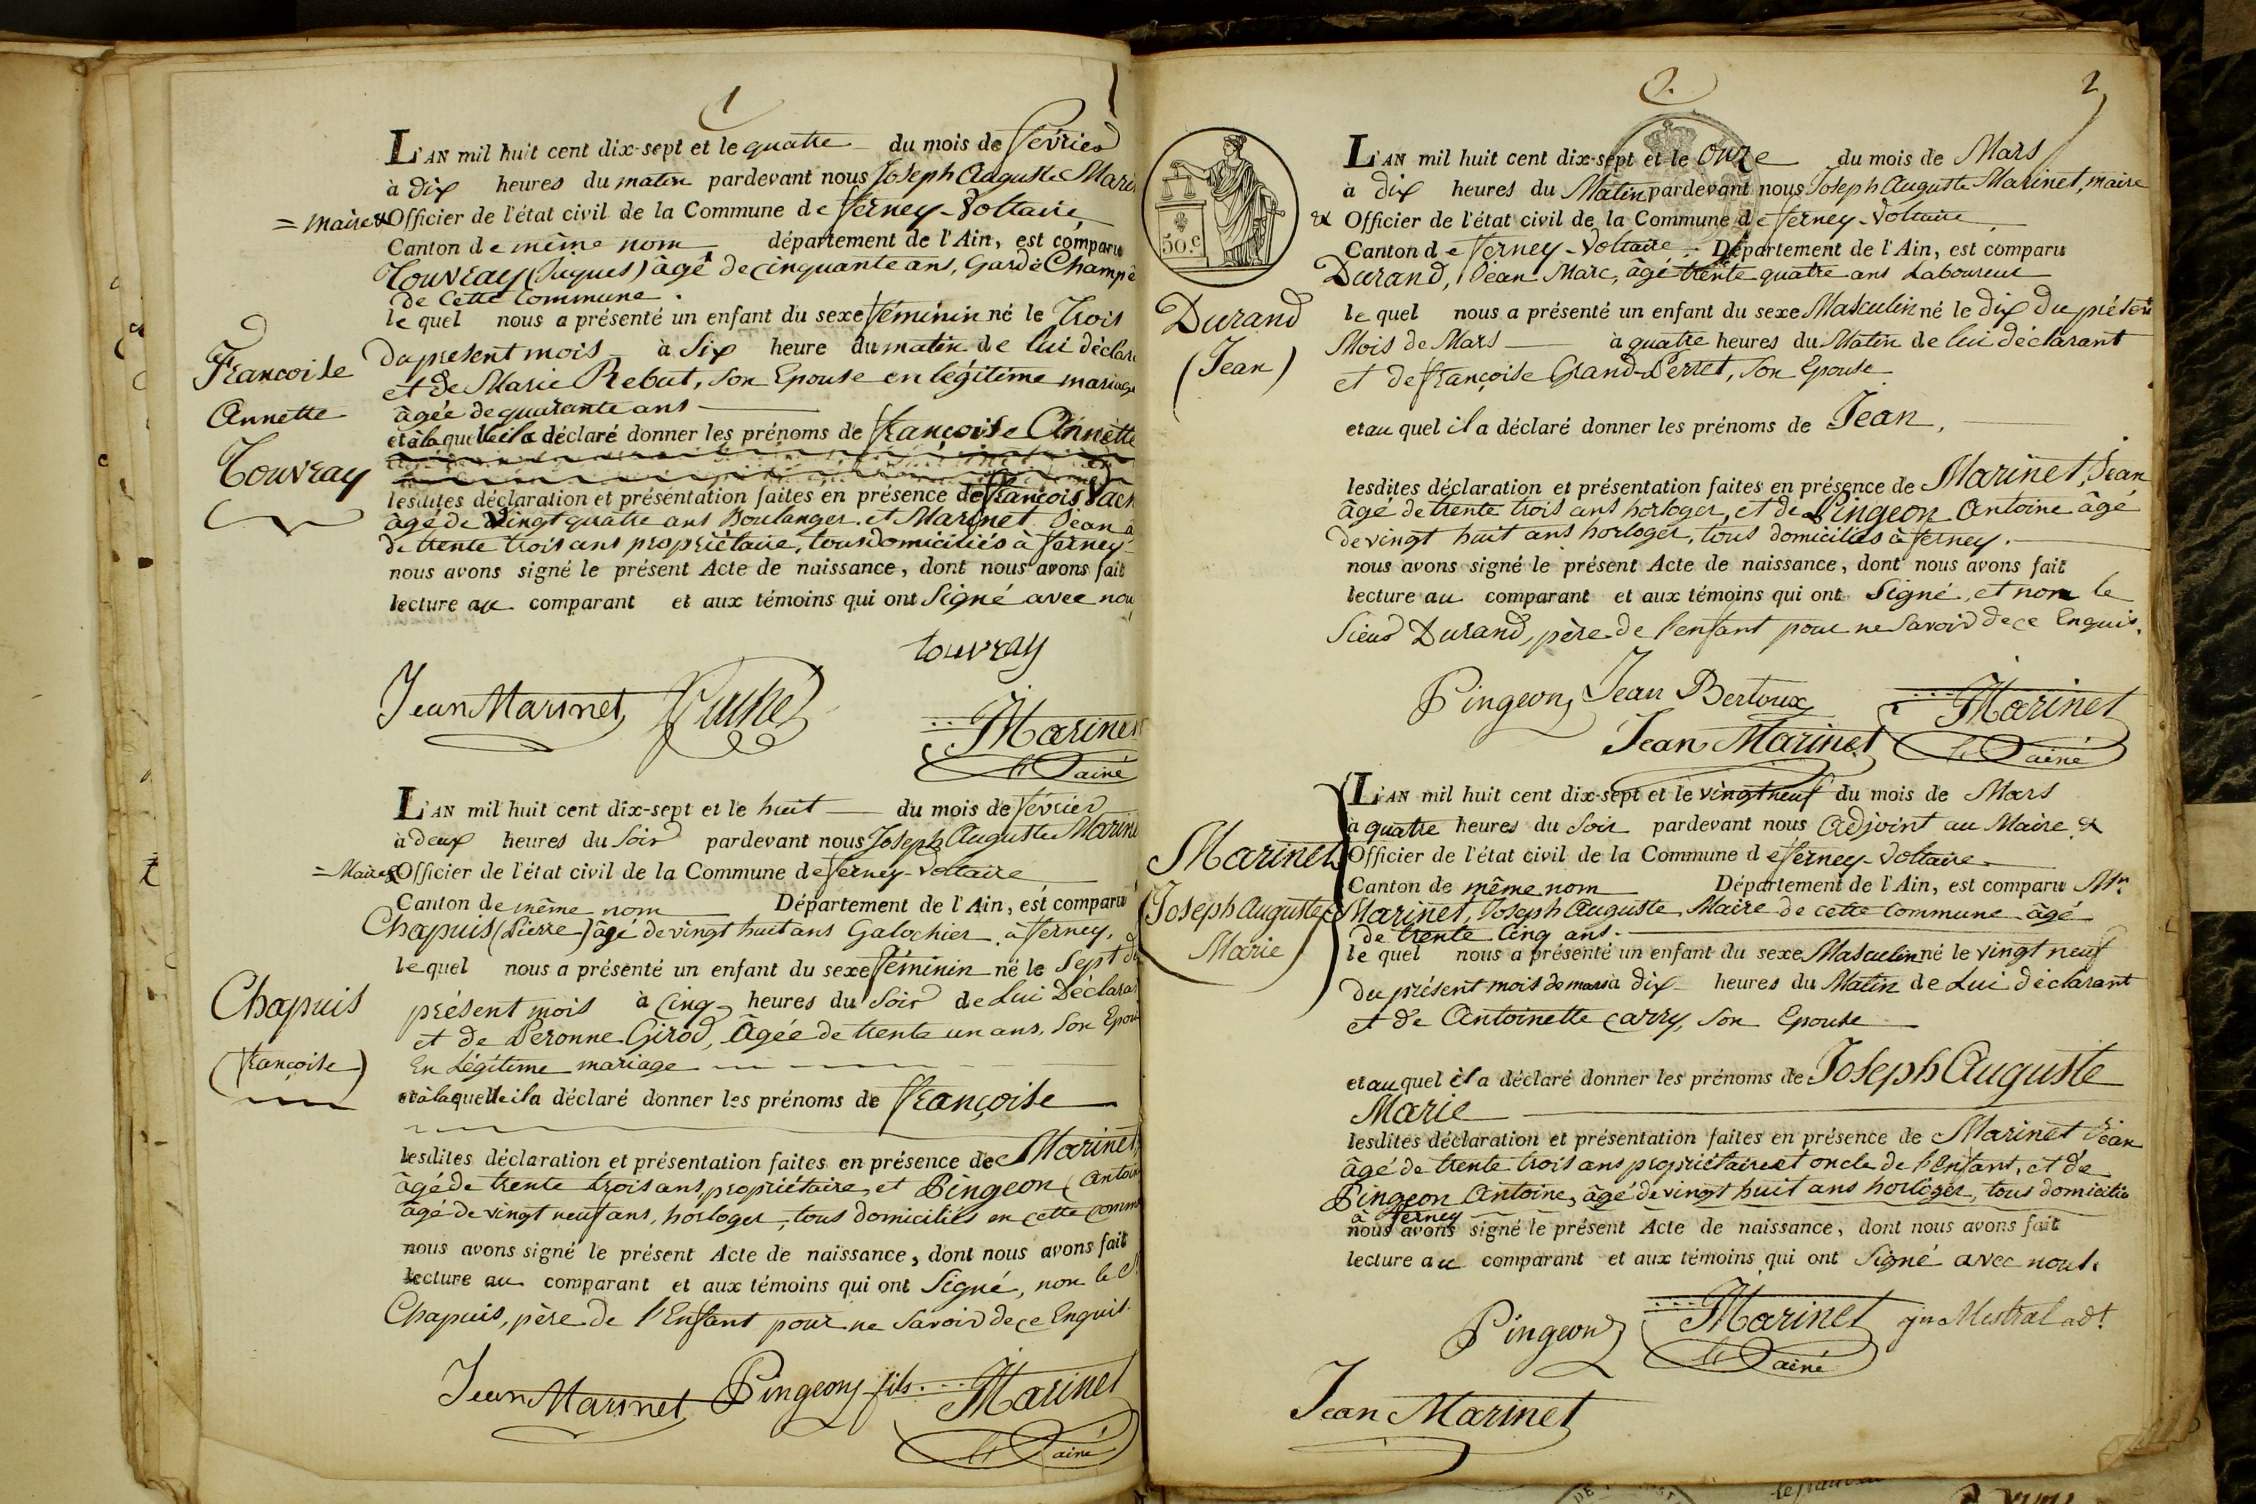 1
L'AN mil huit cent dix-sept et le quatre du mois de fevrier
à dix heures du matin pardevant nous Joseph Auguste Mari
= maire & Officier de l'état civil de la Commune de ferney-Voltaire
Canton de même nom département de l'Ain, est comparu
Touvray (Jaques) âgé de cinquante ans, Garde Champê
de Cette Commune.
le quel nous a présenté un enfant du sexe féminin né le Trois
Françoise
du present mois à Six heure du matin de lui déclara
et de Marie Rebut, Son Epouse en légitime mariage
Annette
âgée de quarante ans
et à la quelle il a déclaré donner les prénoms de françoise Annette
Touvray
lesdites déclaration et présentation faites en présence de françois
âgé de vingt quatre ans Boulanger. et Marinet Jean a
de trente trois ans propriètaire, tous domiciliés à ferney
nous avons signé le présent Acte de naissance, dont nous avons fait
lecture au comparant et aux témoins qui ont Signé avec nou
touvray
Jean Marinet
Marinet
l'ainé
L'AN mil huit cent dix-sept et le huit du mois de février
à deux heures du Soir pardevant nous Joseph Auguste Marine
= Maire & Officier de l'état civil de la Commune de ferney-Voltaire
Canton de même nom Département de l'Ain, est comparu
Chapuis (Pierre) âgé de vingt huit ans Galochier à ferney,
le quel nous a présenté un enfant du sexe féminin né le Sept du
Chapuis
présent mois à Cinq heures du Soir de Lui Déclara
et de Peronne Girod, Âgée de trente un ans, Son Epou
(françoise)
En Légitime mariage
et à la quelle il a déclaré donner les prénoms de françoise
lesdites déclaration et présentation faites en présence de Marinet,
âgé de trente trois ans, propriétaire, et Pingeon (Antoin
âgé de vingt neuf ans, horloger, tous domiciliés en cette Comm
nous avons signé le présent Acte de naissance, dont nous avons fait
lecture au comparant et aux témoins qui ont Signé, non le Sr
Chapuis, père de l'Enfant pour ne Savoir de ce Enquis.
Jean Marinet Pingeon fils. Marinet
l'ainé
2. 2
L'AN mil huit cent dix-sept et le Onze du mois de Mars
à dix heures du Matin pardevant nous Joseph Auguste Marinet, maire
& Officier de l'état civil de la Commune de ferney-Voltaire
50.c
Canton de ferney-Voltaire. Département de l'Ain, est comparu
Durand, Jean Marc, âgé trente quatre ans Laboureur
Durand
le quel nous a présenté un enfant du sexe Masculin né le dix du présent
Mois de Mars à quatre heures du Matin de lui déclarant
(Jean)
et de françoise Grand-Perret, Son Epouse
et au quel il a déclaré donner les prénoms de Jean,
lesdites déclaration et présentation faites en présence de Marinet, Jean
âgé de trente trois ans horloger, et de Pingeon Antoine âgé
de vingt huit ans horloger, tous domiciliés à ferney.
nous avons signé le présent Acte de naissance, dont nous avons fait
lecture au comparant et aux témoins qui ont Signé, et non le
Sieur Durand, père de l'enfant pour ne Savoir de ce Enquis.
Pingeon Jean Bertoux Marinet
Jean Marinet l'ainé
L'AN mil huit cent dix-sept et le vingt neuf du mois de Mars
à quatre heures du Soir pardevant nous Adjoint au Maire, &
Marinet
Officier de l'état civil de la Commune de ferney-Voltaire
Canton de même nom Département de l'Ain, est comparu Mr.
Joseph Auguste
Marinet, Joseph Auguste Maire de cette Commune âgé
de trente Cinq ans.
Marie
le quel nous a présenté un enfant du sexe Masculin né le vingt neuf
du présent mois de mars à dix heures du Matin de Lui déclarant
et de Antoinette Carry, Son Epouse
et au quel il a déclaré donner les prénoms de Joseph Auguste
Marie
lesdites déclaration et présentation faites en présence de Marinet Jean
âgé de trente trois ans propriétaire et oncle de l'Enfant, et de
Pingeon Antoine, âgé de vingt huit ans horloger, tous domicilié
à ferney
nous avons signé le présent Acte de naissance, dont nous avons fait
lecture au comparant et aux témoins qui ont Signé avec nous.
Pingeon Marinet Mestral adt.
l'ainé
Jean Marinet